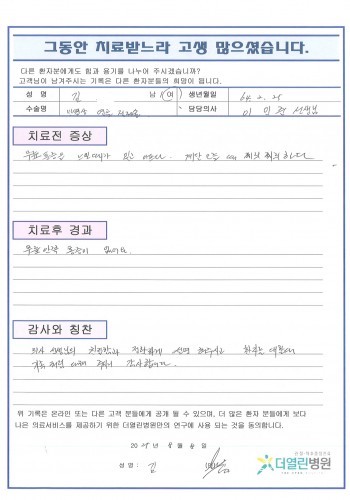 그동안 치료받느라 고생 많으셨습니다.
다른 환자분에게도 힘과 용기를 나누어 주시겠습니까?
고객님이 남겨주시는 기록은 다른 환자분들의 희망이 됩니다.
성 명 김 남 / 여 생년월일 64. 2. 25
수술명 담당의사 이 선생님
치료전 증상
무릎 통증을 느낄때가 있고 계단 오를 때 찌릿 찌릿 하다
치료후 경과
무릎 안쪽 통증이 없어요.
감사와 칭찬
의사 선생님의 친절함과 정확하게 설명 해주시고 환자를 대할때
감사합니다.
위 기록은 온라인 또는 다른 고객 분들에게 공개 될 수 있으며, 더 많은 환자 분들에게 보다
나은 의료서비스를 제공하기 위한 더열린병원만의 연구에 사용 되는 것을 동의합니다.
20 년 월 일
성 명 : 김 (인)
더열린병원